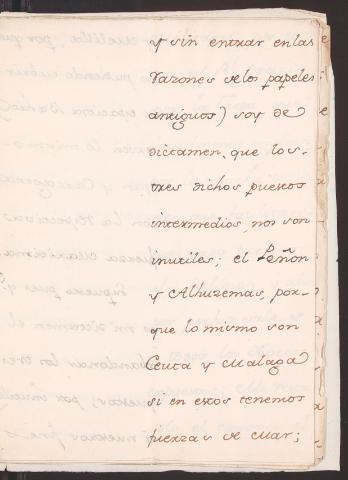 y sin entrar en las
razones de los papeles
antiguos) soy de
dictamen, que los
tres dichos puestos
intermedios, nos son
inutiles; el Peñon
y Alhuzemas, por-
que lo mismo son
Ceuta y Malaga
si en estos tenemos
fuerzas de Mar;